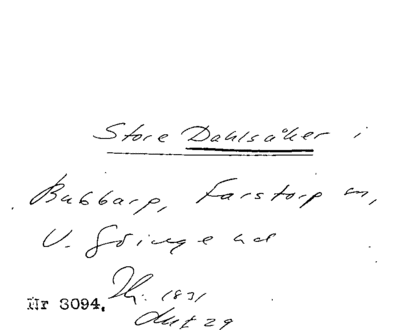 Store Dahlsåker i
Bubbarp, Farstorp sn,
V. Göinge hd
Nr 3094. 1831
29